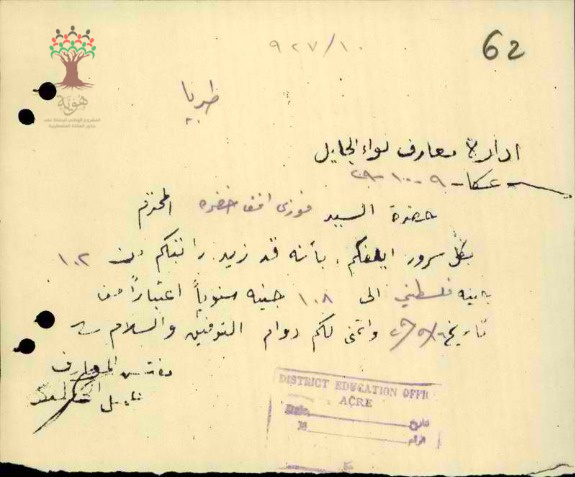 ٩٢٧/١٠
62
طبريا
هوية
ادارة معارف لواء الجليل
عكا - ٩ - ١٠ - ٢٩
حضرة السيد فوزي افندي خضره المحترم
بكل سرور ابلغكم بأنه قد زيد راتبكم من ١٠٢
جنيه فلسطيني الى ١٠٨ جنيه سنوياً اعتباراً من
تاريخ واتمنى لكم دوام التوفيق والسلام
مفتش المعارف
DISTRICT EDUCATION OFFI
ACRE
Date
تاريخ
No